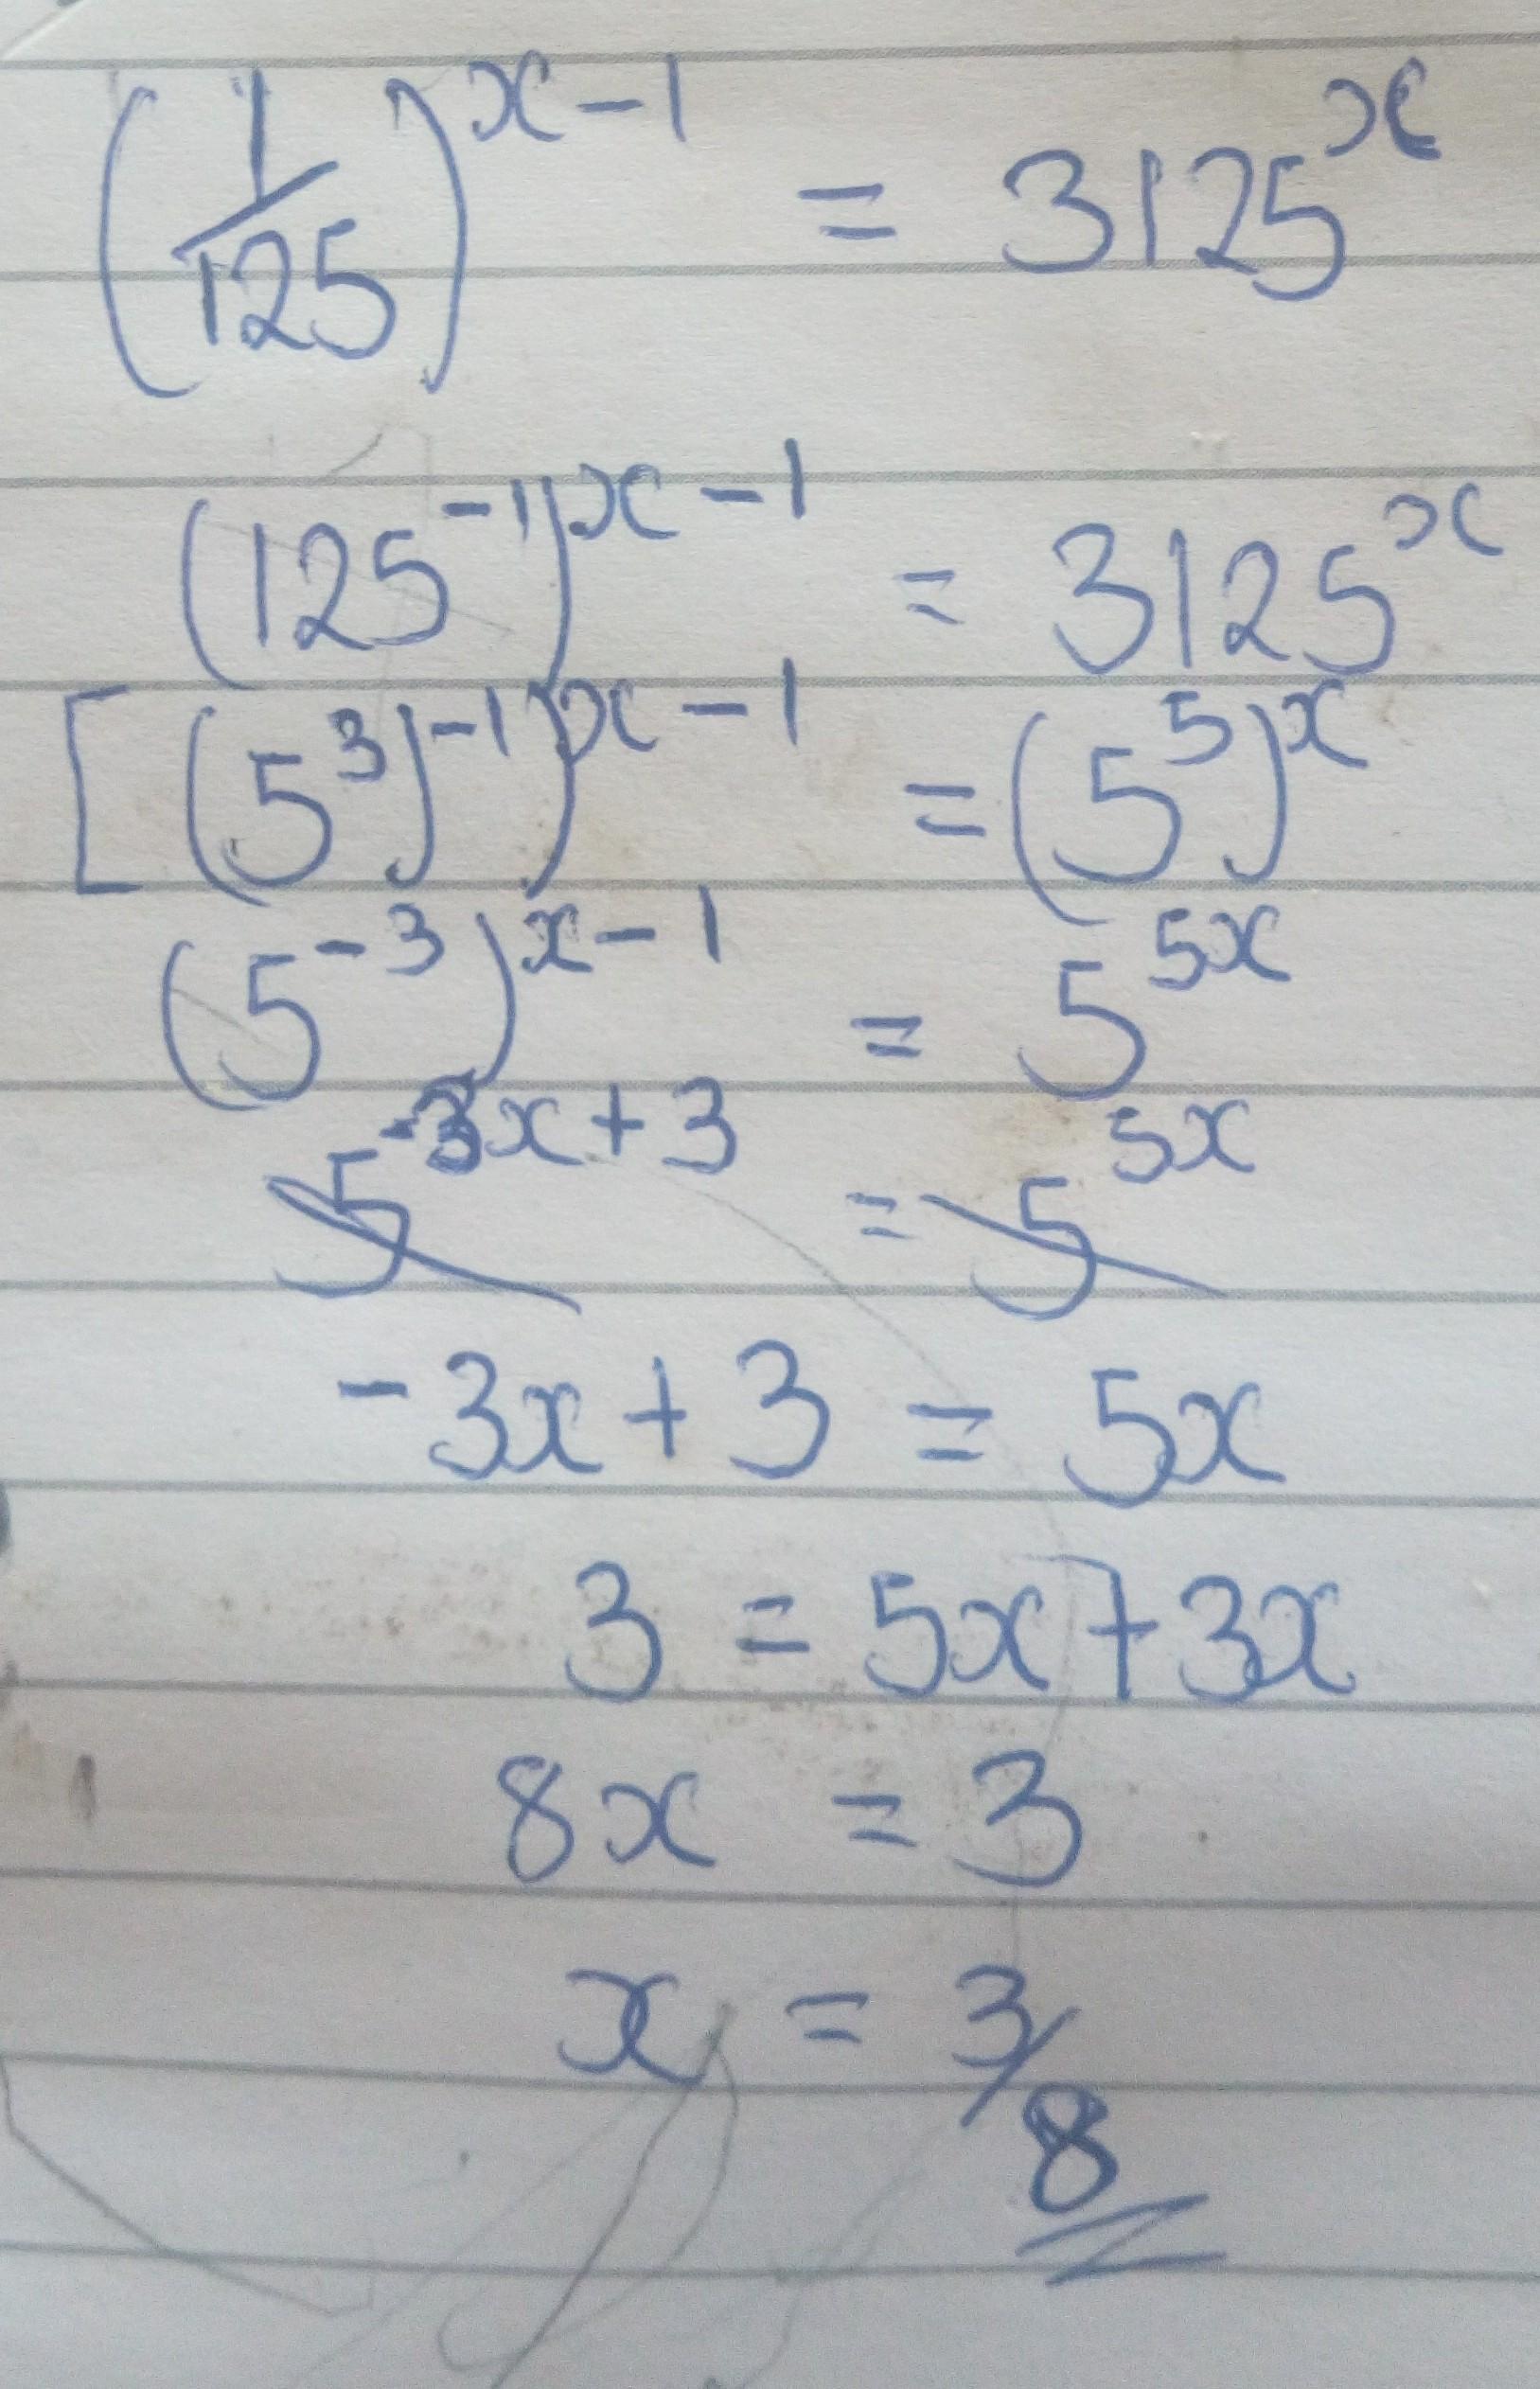 (1/125)^x-1 = 3125^x
(125^-1)^x-1 = 3125^x
[(5^3)^-1)^x-1 = (5^5)^x
(5^-3)^x-1 = 5^5x
5^-3x+3 = 5^5x
-3x+3 = 5x
3 = 5x+3x
8x = 3
x = 3/8